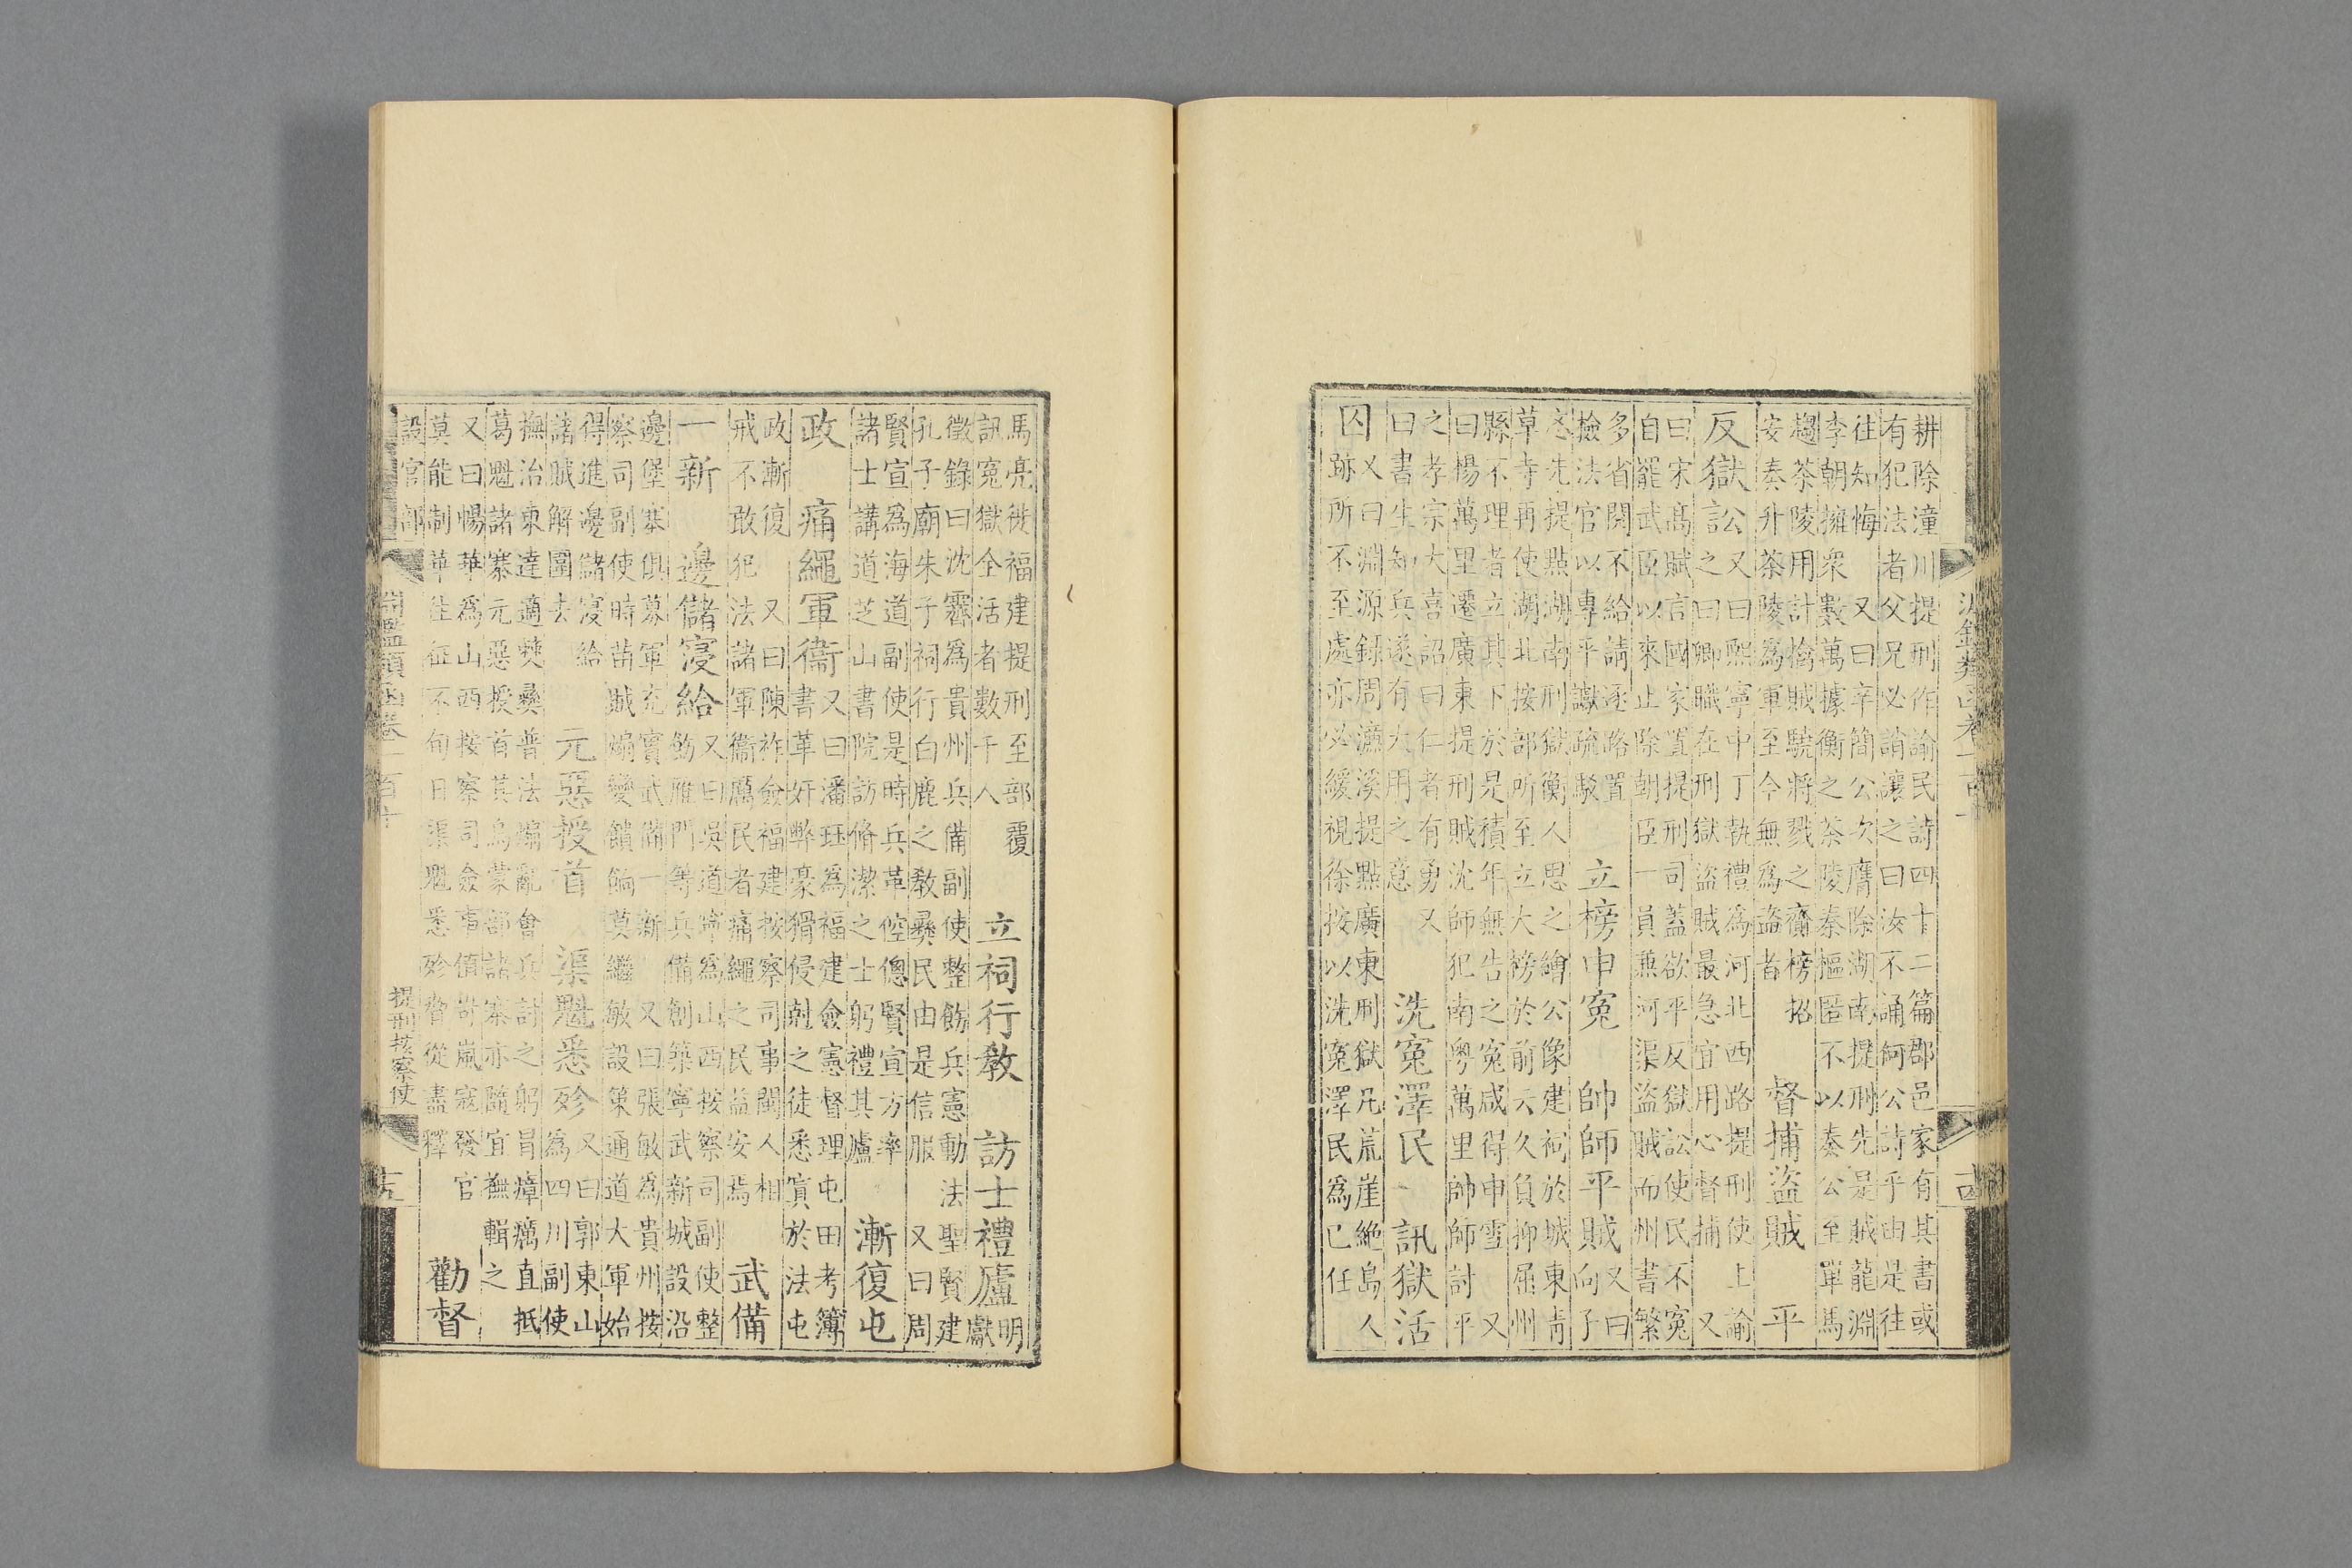 耕除潼川提刑作諭民詩四十二篇郡邑家有其書或
有犯法者父兄必誚讓之曰汝不誦何公詩乎由是往
往知悔 又曰辛簡公次膺除湖南提刑先是賊龍淵
李朝擁衆數萬據衡之茶陵秦樞匿不以奏公至單馬
趨茶陵用計擒賊驍將戮之齎榜招
安奏升茶陵爲軍至今無爲盜者
督捕盜賊 平
反獄訟
又曰熙寧中丁執禮爲河北西路提刑使上諭
之曰卿職在刑獄盜賊最急宜用心督捕 又
曰宋髙賦言國家置提刑司蓋欲平反獄訟使民不寃
自罷武臣以來止除朝臣一員兼河渠盜賊而州書繁
多省閱不給請逐路置
檢法官以專平讞疏駁
立榜申寃 帥師平賊
又曰
向子
忞先提點湖南刑獄衡人思之繪公像建祠於城東青
草寺再使湖北按部所至立大榜於前云久負抑屈州
縣不理者立其下於是積年無告之寃咸得申雪 又
曰楊萬里遷廣東提刑賊沈師犯南粵萬里帥師討平
之孝宗大喜詔曰仁者有勇 又
曰書生知兵遂有大用之意
洗寃澤民 訊獄活
囚
又曰淵源錄周濂溪提點廣東刑獄凡荒崖絶島人
跡所不至處亦必緩視徐按以洗寃澤民爲己任
淵鑑類函卷一百十
十四
馬亮徙福建提刑至部覆
訊寃獄全活者數千人
立祠行敎 訪士禮廬
明
獻
徵錄曰沈霽爲貴州兵備副使整飭兵憲動法聖賢建
孔子廟朱子祠行白鹿之敎彝民由是信服 又曰周
賢宣爲海道副使是時兵革倥傯賢宣方率
諸士講道芝山書院訪脩潔之士躬禮其廬
漸復屯
政 痛繩軍衞
又曰潘珏爲福建僉憲督理屯田考簿
書革奸弊豪猾侵剋之徒悉寘於法屯
政漸復 又曰陳祚僉福建按察司事閩人相
戒不敢犯法諸軍衞厲民者痛繩之民益安焉
武備
一新 邊儲寖給
又曰吳道寧爲山西按察司副使整
飭雁門等兵備創築寧武新城設沿
邊堡寨俱募軍充實武備一新 又曰張敏爲貴州按
察司副使時苗賊煽變饋餉莫繼敏設策通道大軍始
得進邊儲寖給
諸賊解圍去
元惡授首 渠魁悉殄
又曰郭東山
爲四川副使
撫治東達適僰彝普法煽亂會兵討之躬冒瘴癘直抵
葛魁諸寨元惡授首其烏蒙部諸寨亦隨宜撫輯之
又曰暢華爲山西按察司僉事値岢嵐寇發官
莫能制華往征不旬日渠魁悉殄脅從盡釋
勸督
設官部
淵鑑類函卷一百十
提刑按察使
十五